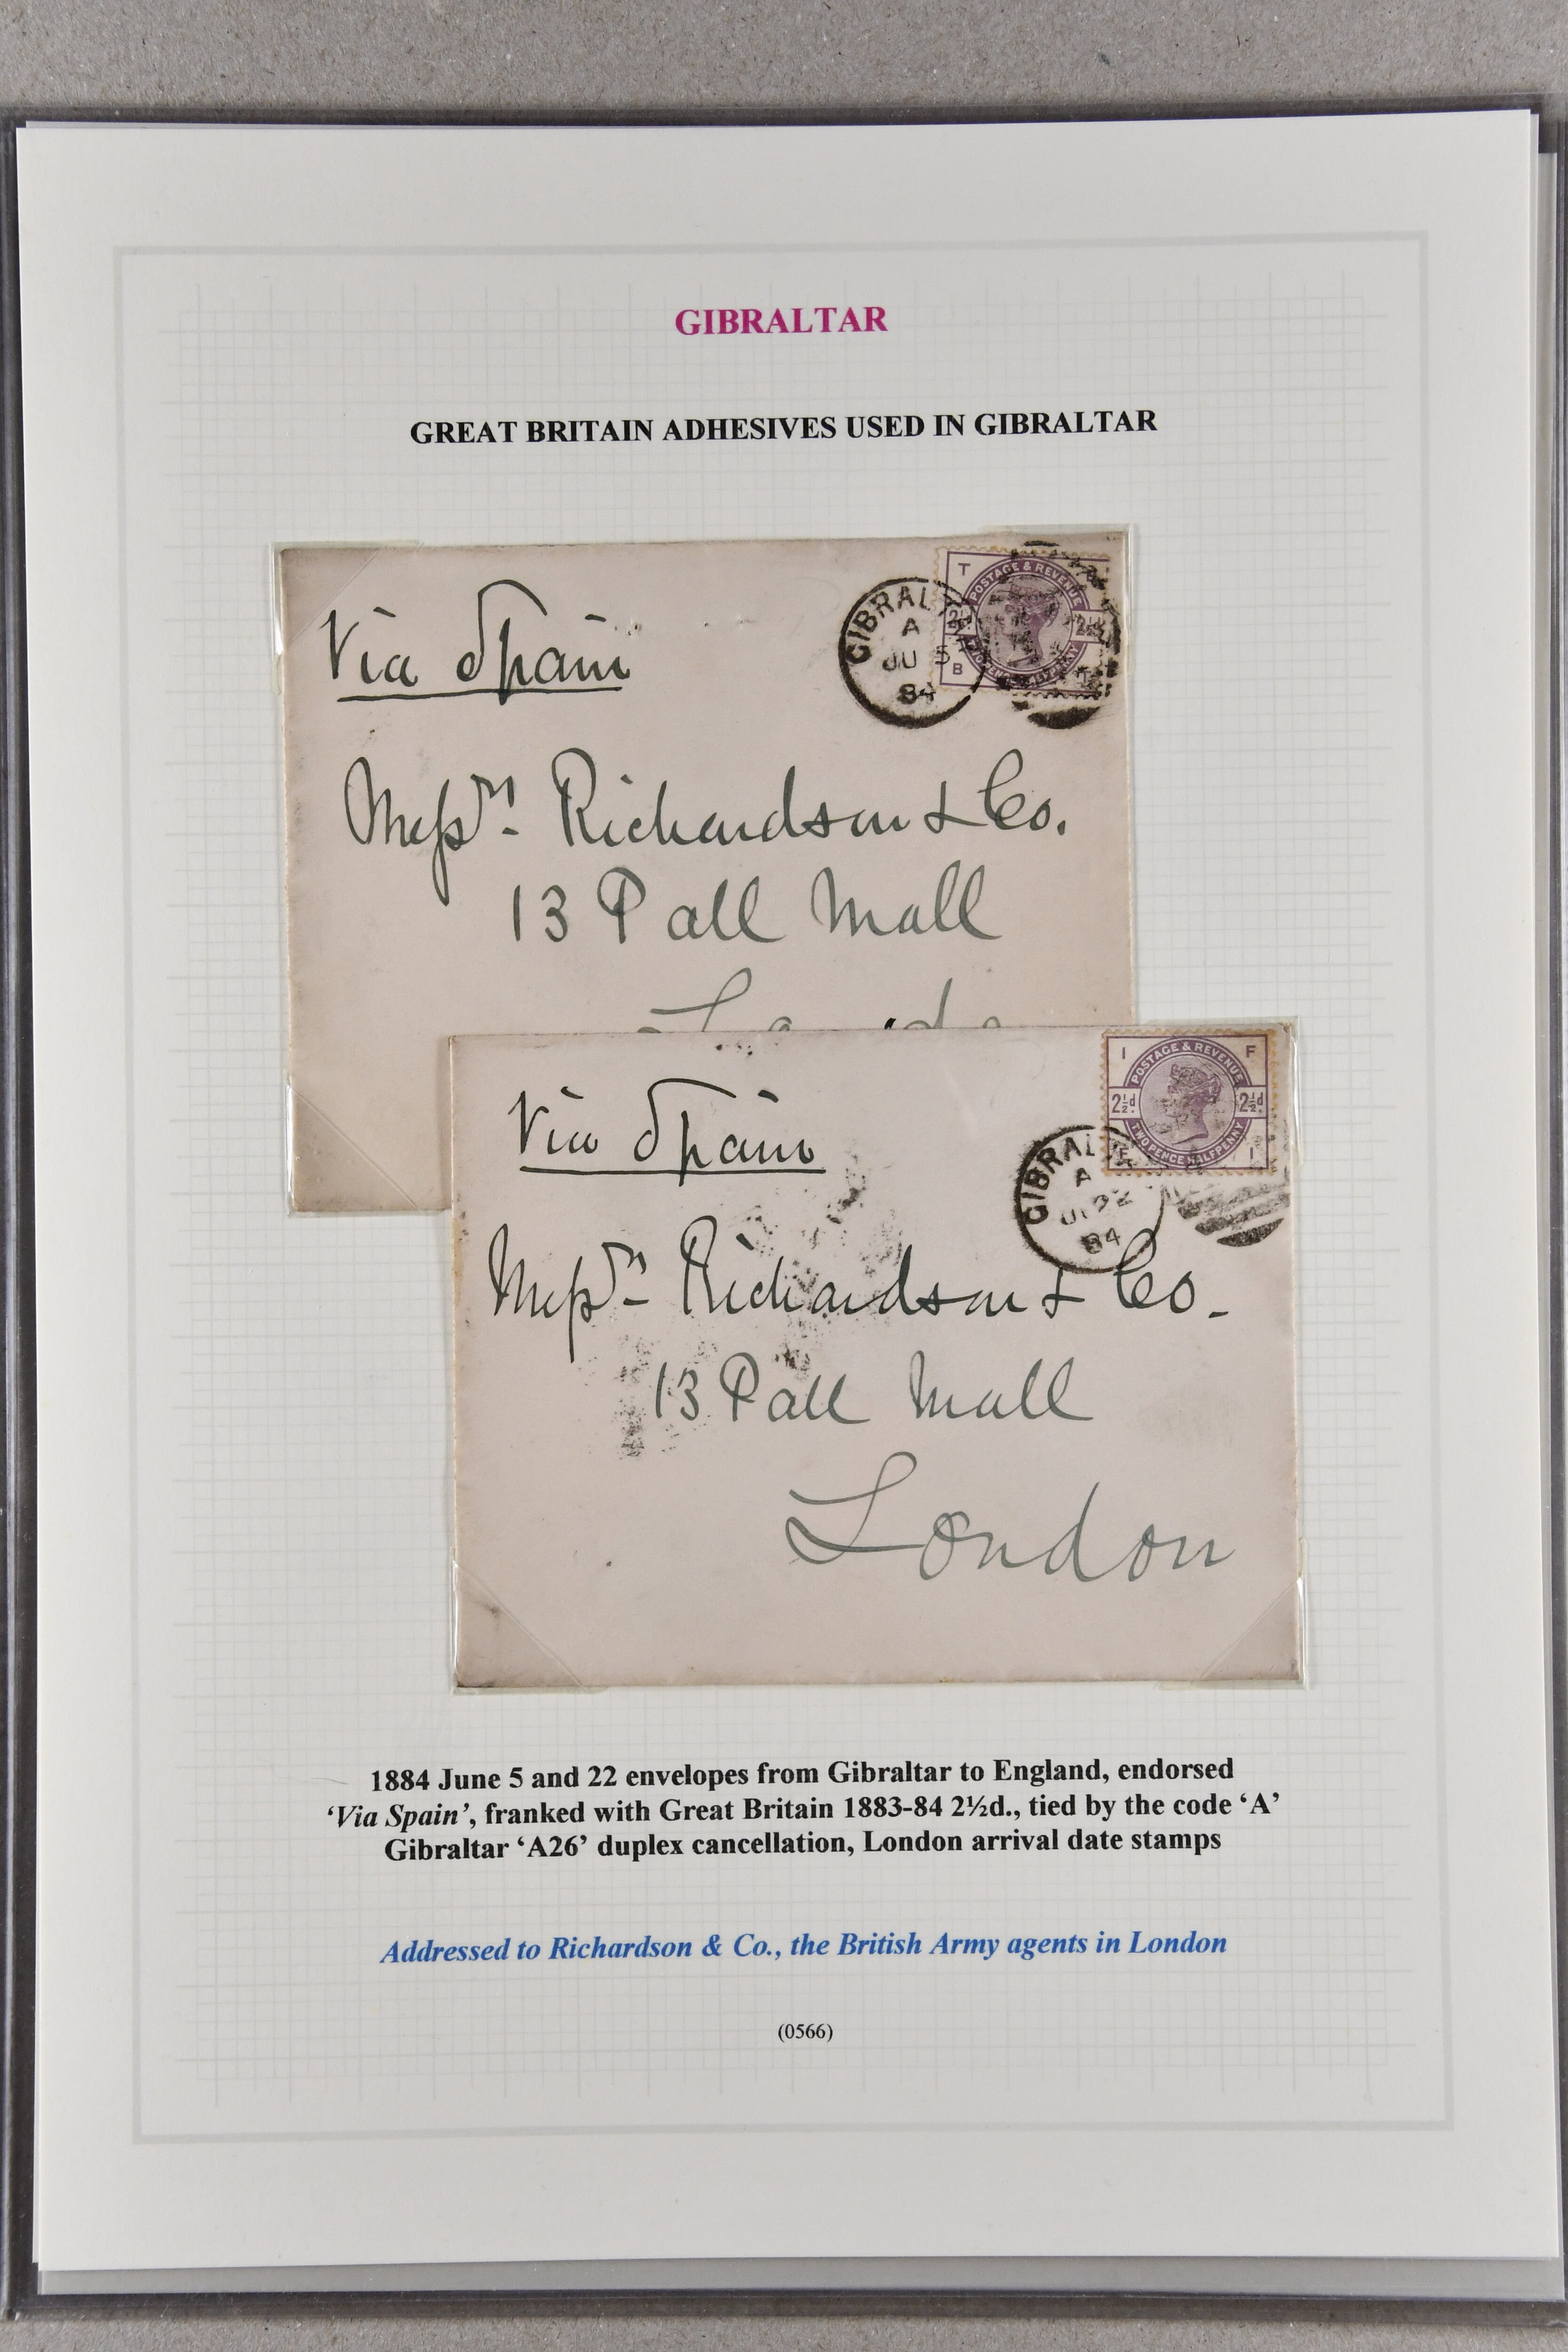 GIBRALTAR
GREAT BRITAIN ADHESIVES USED IN GIBRALTAR
Via Spain
GIBRAL
A
JU 5
84
T
POSTAGE & REVENUE
2½d
2½d
B
T
Messrs. Richardson & Co.
13 Pall Mall
Via Spain
GIBRAL
A
84
I F
POSTAGE & REVENUE
2½d. 2½d.
TWOPENCE HALFPENNY
F I
Messrs. Richardson & Co.
13 Pall Mall
London
1884 June 5 and 22 envelopes from Gibraltar to England, endorsed
‘Via Spain’, franked with Great Britain 1883-84 2½d., tied by the code ‘A’
Gibraltar ‘A26’ duplex cancellation, London arrival date stamps
Addressed to Richardson & Co., the British Army agents in London
(0566)